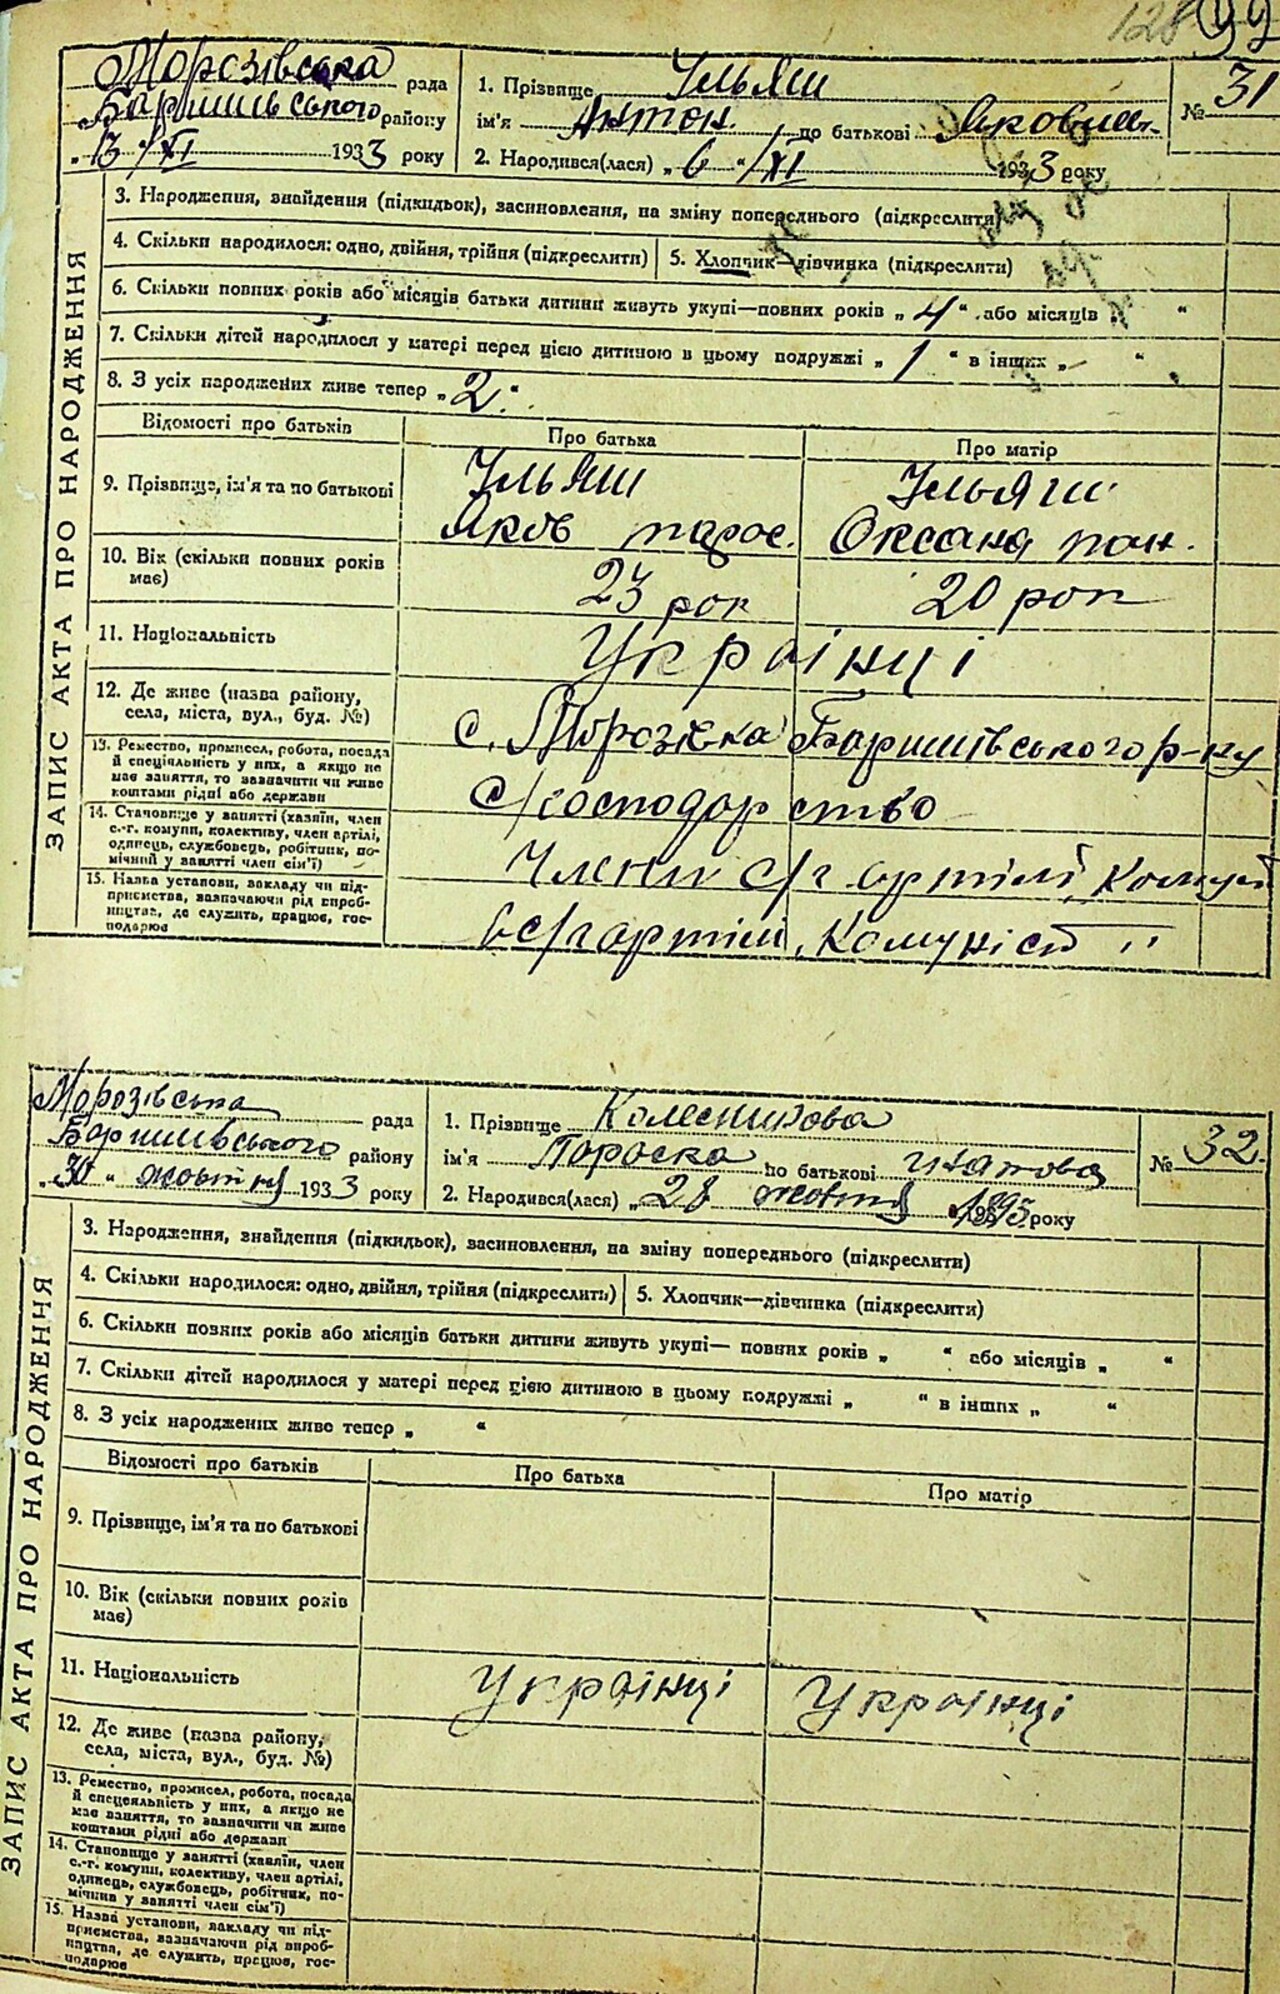 128 99
Морозівська рада
Баришівського району
„13“ XI 1933 року
1. Прізвище Ільяш
ім'я Антон по батькові Якович
2. Народився(лася) „6“ XI 1933 року
№ 31
ЗАПИС АКТА ПРО НАРОДЖЕННЯ
3. Народження, знайдення (підкидьок), засиновлення, на зміну попереднього (підкреслити)
4. Скільки народилося: одно, двійня, трійня (підкреслити) 5. Хлопчик—дівчинка (підкреслити)
6. Скільки повних років або місяців батьки дитини живуть укупі—повних років „4“ або місяців „ “
7. Скільки дітей народилося у матері перед цією дитиною в цьому подружжі „1“ в інших „–“
8. З усіх народжених живе тепер „2“
Відомості про батьків Про батька Про матір
9. Прізвище, ім'я та по батькові
Ільяш Ільяш
Яков Оксана
10. Вік (скільки повних років
має)
23 рок 20 рок
11. Національність Українці
12. Де живе (назва району,
села, міста, вул., буд. №)
с. Морозівка Баришівського р-ку
13. Ремество, промисел, робота, посада
й спеціяльність у них, а якщо не
має заняття, то зазначити чи живе
коштами рідні або держави
с/господарство
14. Становище у занятті (хазяїн, член
с.-г. комуни, колективу, член артілі,
одинець, службовець, робітник, по-
мічний у занятті член сім'ї)
Члени с/г артілі
15. Назва установи, закладу чи під-
приємства, зазначаючи рід вироб-
ництва, де служить, працює, гос-
подарює
в с/г артілі „Комуніст“
Морозівська рада
Баришівського району
„30“ жовтня 1933 року
1. Прізвище Колесникова
ім'я Пороска по батькові
2. Народився(лася) „28 жовтня 1895 року
№ 32
ЗАПИС АКТА ПРО НАРОДЖЕННЯ
3. Народження, знайдення (підкидьок), засиновлення, на зміну попереднього (підкреслити)
4. Скільки народилося: одно, двійня, трійня (підкреслить) 5. Хлопчик—дівчинка (підкреслити)
6. Скільки повних років або місяців батьки дитини живуть укупі— повних років „ “ або місяців „ “
7. Скільки дітей народилося у матері перед цією дитиною в цьому подружжі „ “ в інших „ “
8. З усіх народжених живе тепер „ “
Відомості про батьків Про батька Про матір
9. Прізвище, ім'я та по батькові
10. Вік (скільки повних років
має)
11. Національність Українці Українці
12. Де живе (назва району,
села, міста, вул., буд. №)
13. Ремество, промисел, робота, посада
й спецеяльність у них, а якщо не
має заняття, то зазначити чи живе
коштами рідні або держави
14. Становище у занятті (хазяїн, член
с.-г. комуни, колективу, член артілі,
одинець, службовець, робітник, по-
мічник у занятті член сім'ї)
15. Назва установи, закладу чи під-
приємства, зазначаючи рід вироб-
ництва, де служить, працює, гос-
подарює